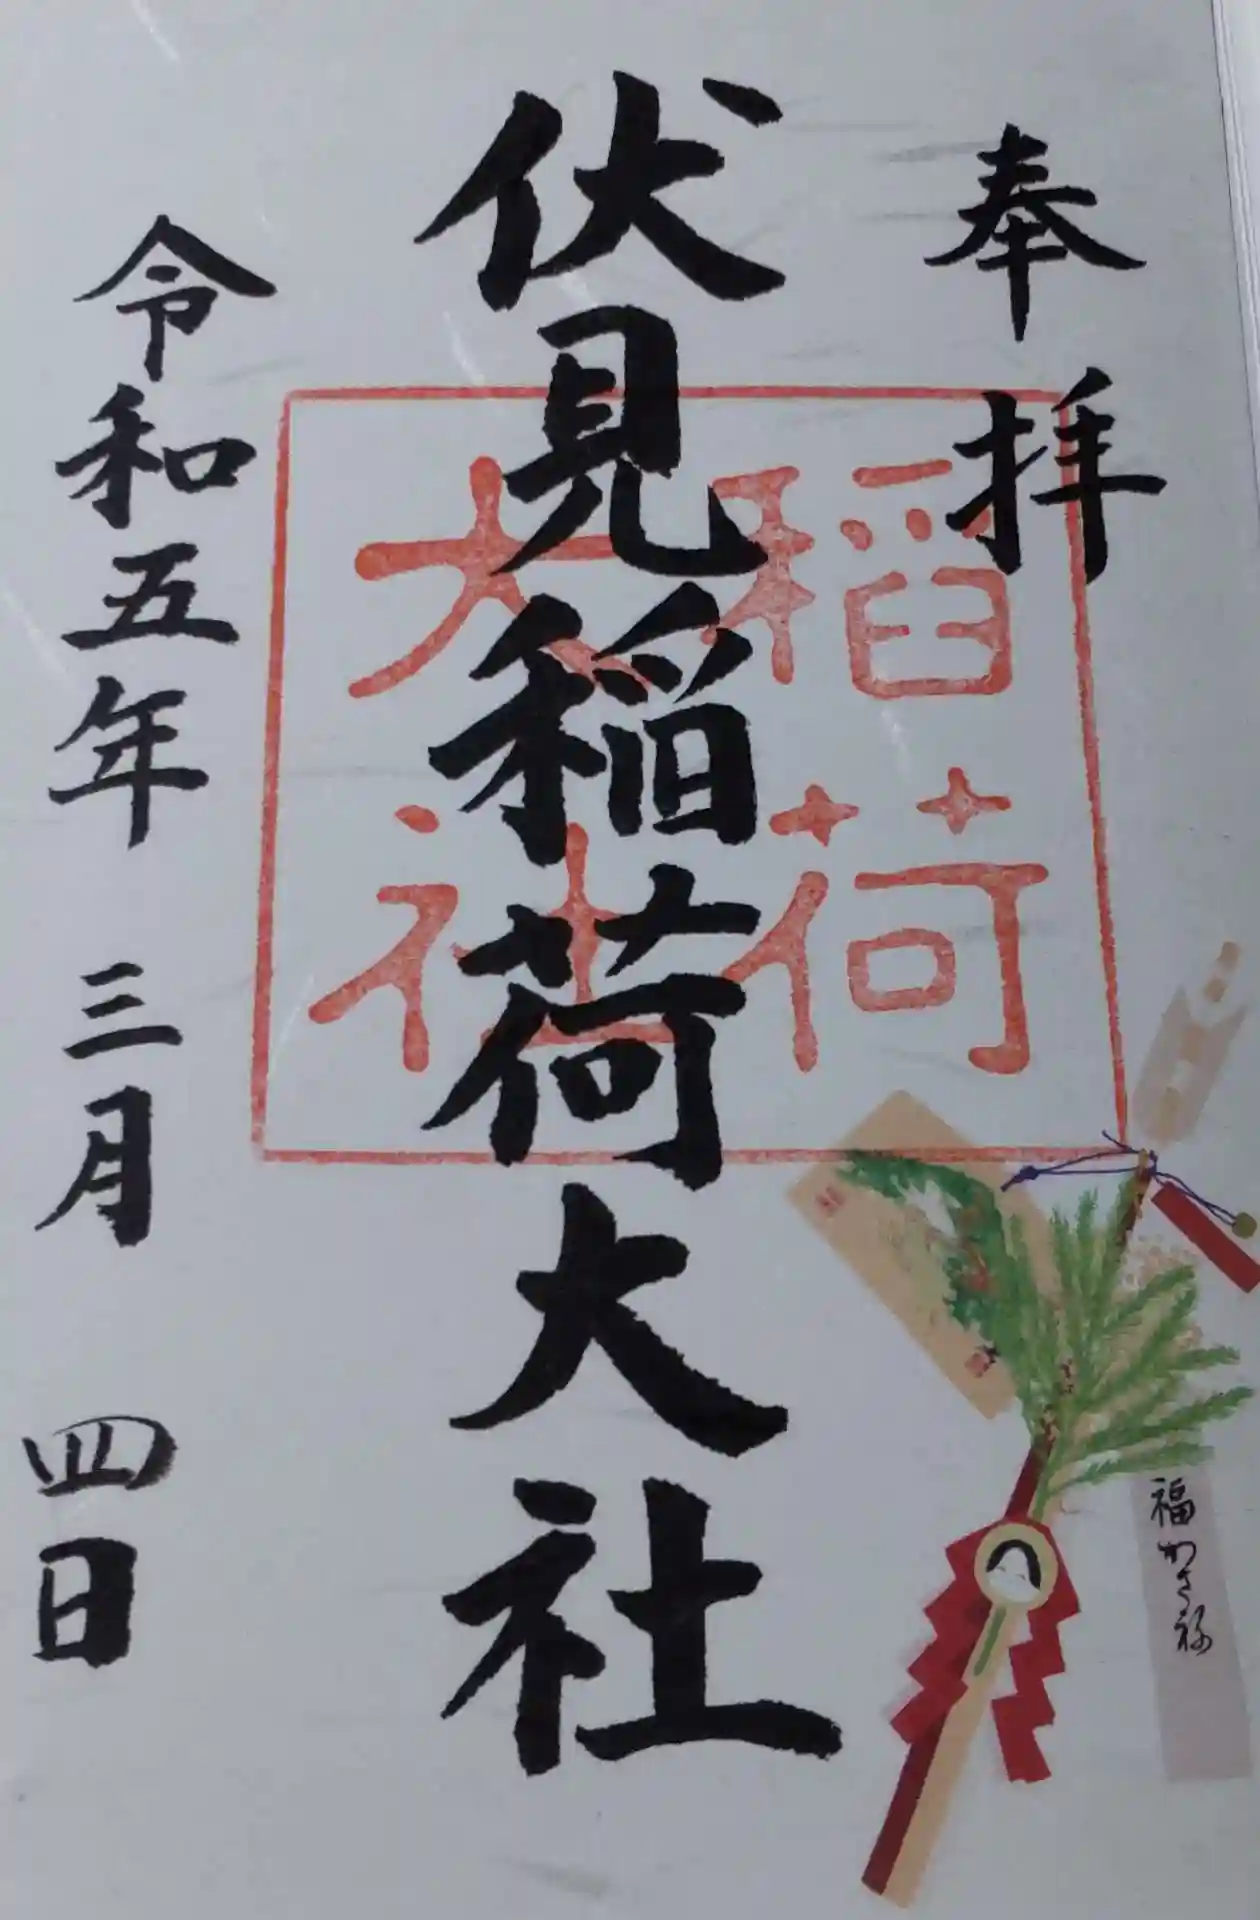 奉拝
伏見稲荷大社
稲荷
大社
令和五年 三月 四日
福かさね